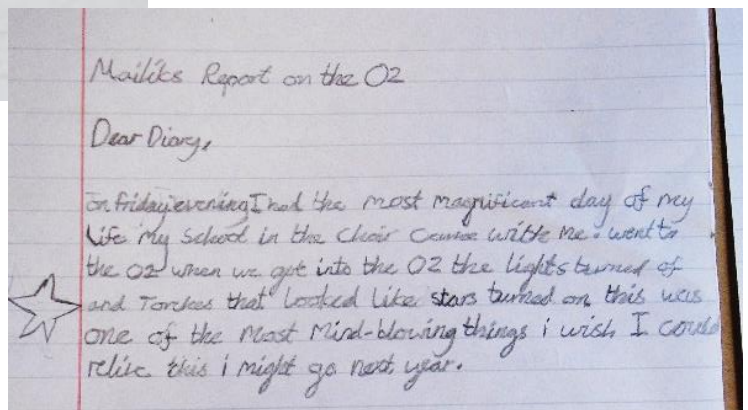 Mailiks Report on the O2
Dear Diary,
on friday evening I had the most magnificent day of my
Life my School in the Choir came withe me. went to
the O2 when we got into the O2 the lights turned of
and Torches that looked like stars turned on this was
one of the most Mind-blowing things i wish I could
relive this i might go next year.